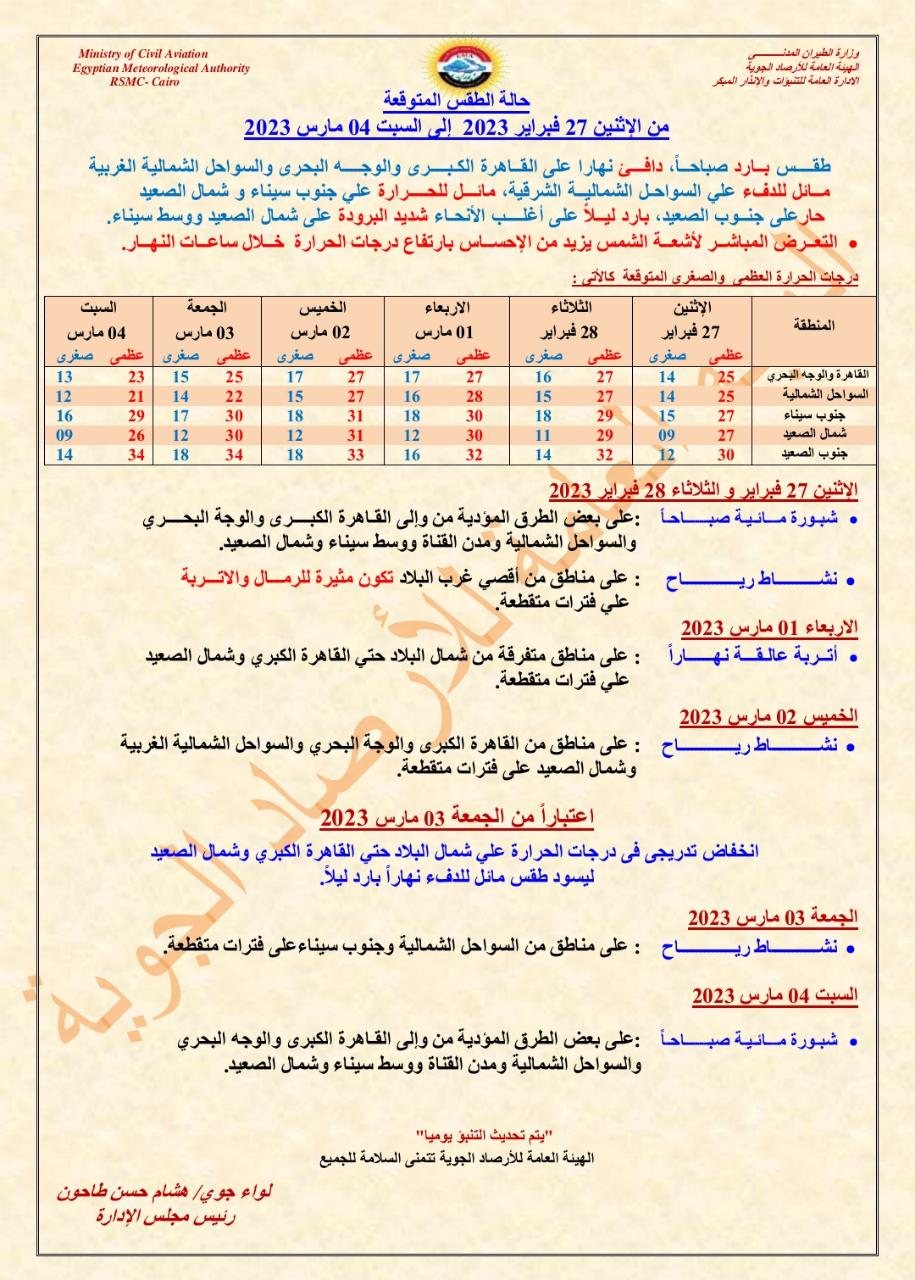 Ministry of Civil Aviation
Egyptian Meteorological Authority
RSMC- Cairo
وزارة الطيران المدنـــــى
الهيئة العامة للأرصاد الجوية
الادارة العامة للتنبؤات والإنذار المبكر
حالة الطقس المتوقعة
من الإثنين 27 فبراير 2023 إلى السبت 04 مارس 2023
طقـــس بــارد صباحـاً، دافــئ نهارا على القـاهرة الكبــرى والوجــه البحرى والسواحل الشمالية الغربية
مــائل للدفء علي السواحـل الشماليــة الشرقية، مائــل للحــرارة علي جنوب سيناء و شمال الصعيد
حارعلى جنــوب الصعيد، بارد ليـلاً على أغلــب الأنحـاء شديد البرودة على شمال الصعيد ووسط سيناء.
• التعـرض المباشــر لأشعــة الشمس يزيد من الإحساس بارتفاع درجات الحرارة خــلال ساعــات النهـار.
درجات الحرارة العظمى والصغرى المتوقعة كالأتى :
المنطقة الإثنين الثلاثاء الاربعاء الخميس الجمعة السبت
27 فبراير 28 فبراير 01 مارس 02 مارس 03 مارس 04 مارس
عظمى صغرى عظمى صغرى عظمى صغرى عظمى صغرى عظمى صغرى عظمى صغرى
القاهرة والوجه البحري 25 14 27 16 27 17 27 17 25 15 23 13
السواحل الشمالية 25 14 27 15 28 16 27 15 22 14 21 12
جنوب سيناء 27 15 29 18 30 18 31 18 30 17 29 16
شمال الصعيد 27 09 29 11 30 12 31 12 30 12 26 09
جنوب الصعيد 30 12 32 14 32 16 33 18 34 18 34 14
الإثنين 27 فبراير و الثلاثاء 28 فبراير 2023
• شبـورة مــائيـة صبــــاحـاً :على بعض الطرق المؤدية من وإلى القـاهرة الكبــرى والوجة البحــري
والسواحل الشمالية ومدن القناة ووسط سيناء وشمال الصعيد.
• نشـــــاط ريـــــــاح : على مناطق من أقصي غرب البلاد تكون مثيرة للرمــال والاتــربة
علي فترات متقطعة.
الاربعاء 01 مارس 2023
• أتــربة عالـقــة نهـــــاراً : على مناطق متفرقة من شمال البلاد حتي القاهرة الكبري وشمال الصعيد
علي فترات متقطعة.
الخميس 02 مارس 2023
• نشـــــاط ريـــــــاح : على مناطق من القاهرة الكبرى والوجة البحري والسواحل الشمالية الغربية
وشمال الصعيد على فترات متقطعة.
اعتباراً من الجمعة 03 مارس 2023
انخفاض تدريجى فى درجات الحرارة علي شمال البلاد حتي القاهرة الكبري وشمال الصعيد
ليسود طقس مائل للدفء نهاراً بارد ليلاً.
الجمعة 03 مارس 2023
• نشـــــاط ريـــــــاح : على مناطق من السواحل الشمالية وجنوب سيناءعلى فترات متقطعة.
السبت 04 مارس 2023
• شبـورة مــائيـة صبــــاحـاً :على بعض الطرق المؤدية من وإلى القاهرة الكبرى والوجه البحري
والسواحل الشمالية ومدن القناة ووسط سيناء وشمال الصعيد.
"يتم تحديث التنبؤ يوميا"
الهيئة العامة للأرصاد الجوية تتمنى السلامة للجميع
لواء جوي/ هشام حسن طاحون
رئيس مجلس الإدارة